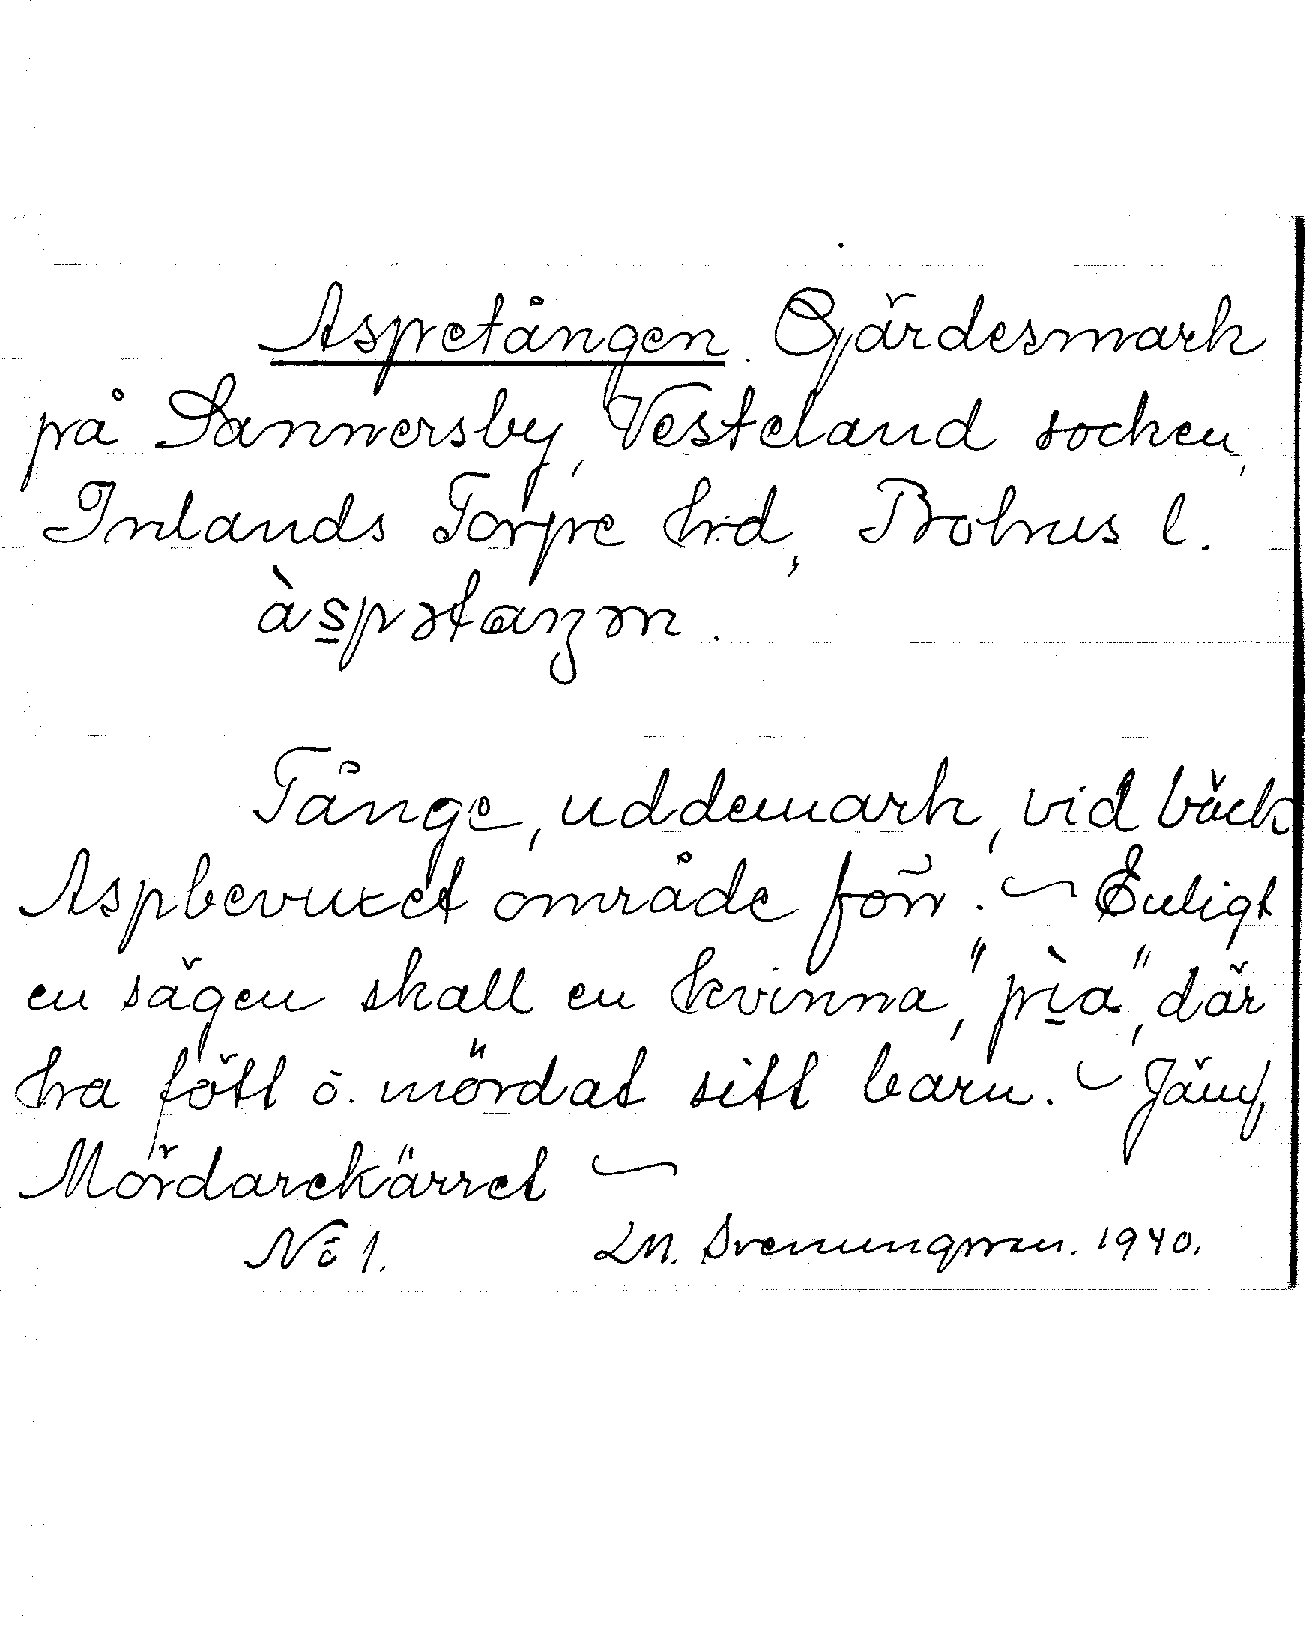 Aspetången. Gärdesmark
på Sannersby, Vesteland socken,
Inlands Torpe hrd, Bohus l.
àspətaŋən.
Tånge, uddemark, vid bäck
Aspbevuxet område förr. ~ Enligt
en sägen skall en kvinna, "pìa", där
ha fött o. mördat sitt barn. ~ Jämf,
Mördarekärret ~
No 1. LM. Svenungsson. 1940.